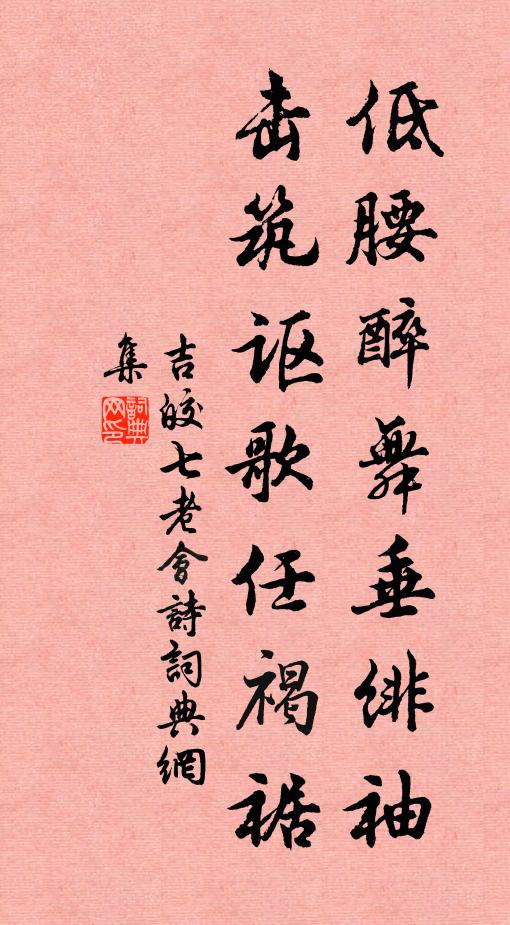 低腰醉舞垂绯袖
击筑讴歌任褐裾
吉皎七老会詩詞典網
集
詞典网印